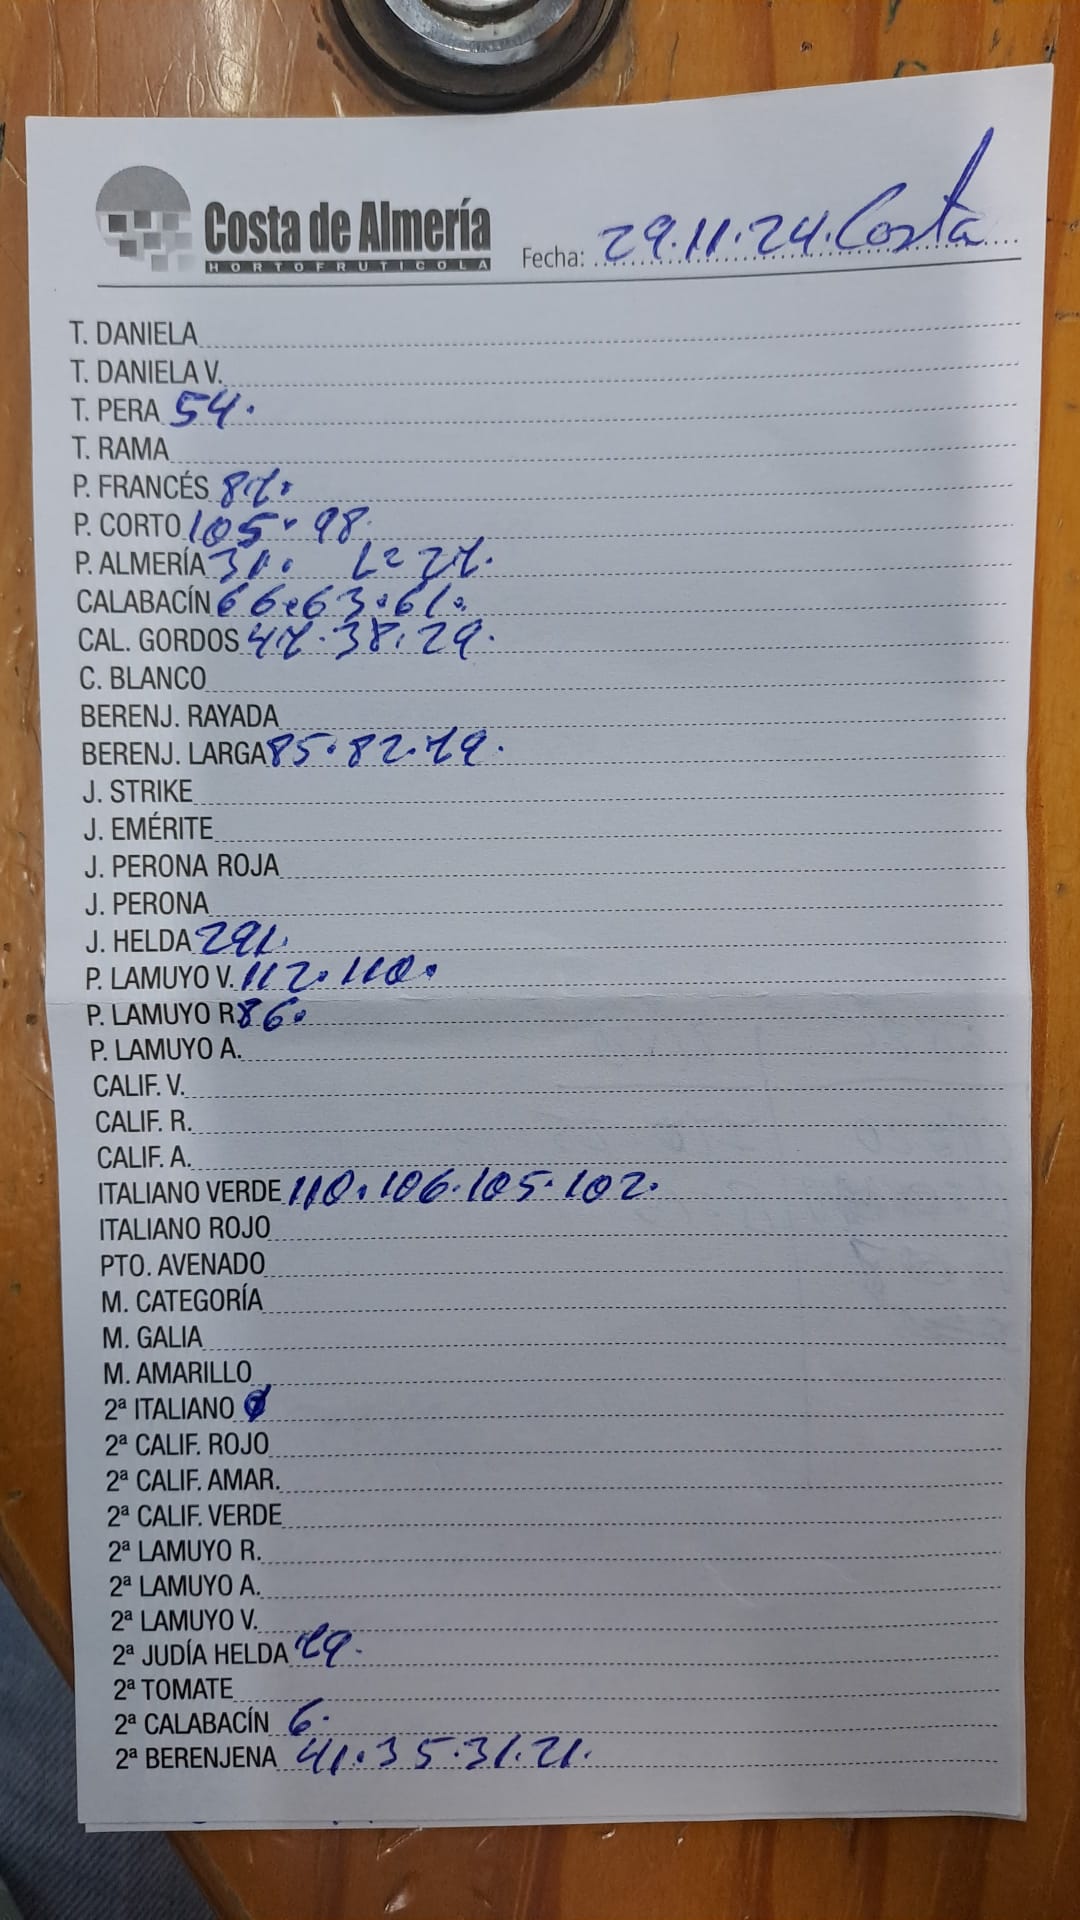 Costa de Almería
HORTOFRUTICOLA
Fecha: 29.11.24. Costa
T. DANIELA
T. DANIELA V.
T. PERA 54.
T. RAMA
P. FRANCÉS 87.
P. CORTO 105. 98.
P. ALMERÍA 31. L= 27.
CALABACÍN 66.63.61.
CAL. GORDOS 47.38.29.
C. BLANCO
BERENJ. RAYADA
BERENJ. LARGA 85.82.79.
J. STRIKE
J. EMÉRITE
J. PERONA ROJA
J. PERONA
J. HELDA 291.
P. LAMUYO V. 112.110.
P. LAMUYO R 86.
P. LAMUYO A.
CALIF. V.
CALIF. R.
CALIF. A.
ITALIANO VERDE 110.106.105.102.
ITALIANO ROJO
PTO. AVENADO
M. CATEGORÍA
M. GALIA
M. AMARILLO
2ª ITALIANO
2ª CALIF. ROJO
2ª CALIF. AMAR.
2ª CALIF. VERDE
2ª LAMUYO R.
2ª LAMUYO A.
2ª LAMUYO V.
2ª JUDÍA HELDA 79.
2ª TOMATE
2ª CALABACÍN 6.
2ª BERENJENA 41.35.31.21.